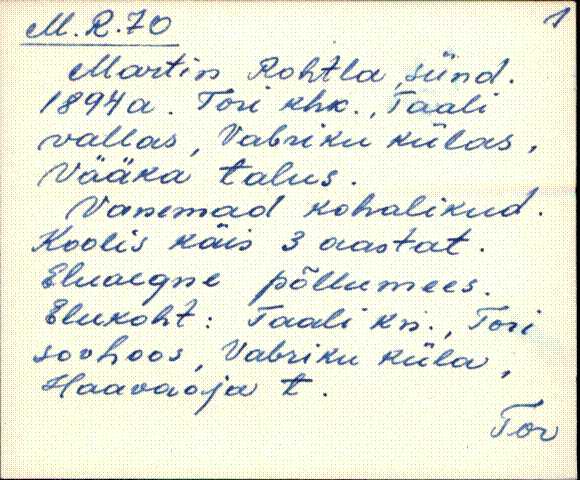 M.R.70
1
Martin Rohtla, sünd.
1894 a. Tori khk., Taali
vallas, Vabriku külas,
Vääka talus.
Vanemad kohalikud.
Koolis käis 3 aastat.
Eluaegne põllumees.
Elukoht: Taali kn., Tori
sovhoos, Vabriku küla,
Haavaoja t.
Tor